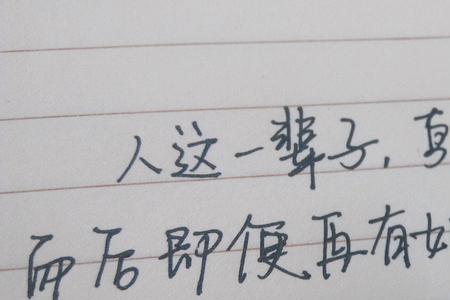 人这一辈子，真
而后即便再有如